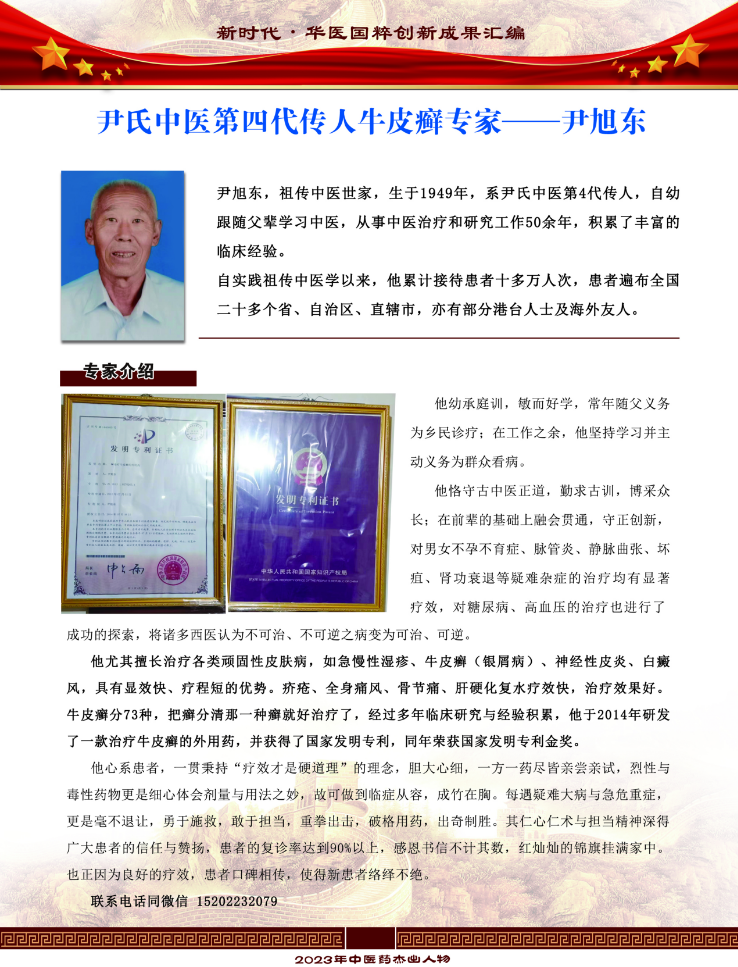 新时代·华医国粹创新成果汇编
尹氏中医第四代传人牛皮癣专家——尹旭东
尹旭东，祖传中医世家，生于1949年，系尹氏中医第4代传人，自幼
跟随父辈学习中医，从事中医治疗和研究工作50余年，积累了丰富的
临床经验。
自实践祖传中医学以来，他累计接待患者十多万人次，患者遍布全国
二十多个省、自治区、直辖市，亦有部分港台人士及海外友人。
专家介绍
发明专利证书
发明专利证书
中华人民共和国国家知识产权局
他幼承庭训，敏而好学，常年随父义务
为乡民诊疗；在工作之余，他坚持学习并主
动义务为群众看病。
他恪守古中医正道，勤求古训，博采众
长；在前辈的基础上融会贯通，守正创新，
对男女不孕不育症、脉管炎、静脉曲张、坏
疽、肾功衰退等疑难杂症的治疗均有显著
疗效，对糖尿病、高血压的治疗也进行了
成功的探索，将诸多西医认为不可治、不可逆之病变为可治、可逆。
他尤其擅长治疗各类顽固性皮肤病，如急慢性湿疹、牛皮癣（银屑病）、神经性皮炎、白癜
风，具有显效快、疗程短的优势。疥疮、全身痛风、骨节痛、肝硬化复水疗效快，治疗效果好。
牛皮癣分73种，把癣分清那一种癣就好治疗了，经过多年临床研究与经验积累，他于2014年研发
了一款治疗牛皮癣的外用药，并获得了国家发明专利，同年荣获国家发明专利金奖。
他心系患者，一贯秉持“疗效才是硬道理”的理念，胆大心细，一方一药尽皆亲尝亲试，烈性与
毒性药物更是细心体会剂量与用法之妙，故可做到临症从容，成竹在胸。每遇疑难大病与急危重症，
更是毫不退让，勇于施救，敢于担当，重拳出击，破格用药，出奇制胜。其仁心仁术与担当精神深得
广大患者的信任与赞扬，患者的复诊率达到90%以上，感恩书信不计其数，红灿灿的锦旗挂满家中。
也正因为良好的疗效，患者口碑相传，使得新患者络绎不绝。
联系电话同微信 15202232079
2023年中医药杰出人物